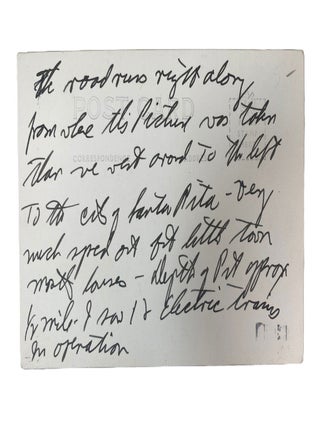 The road runs right along
from where this Picture was taken
then we went around To The left
To the city of Santa Rita - very
much spread out but little town
mostly houses - depth of Pit approx
½ mile. I saw 12 Electric trains
in operation
POST CARD
CORRESPONDENCE